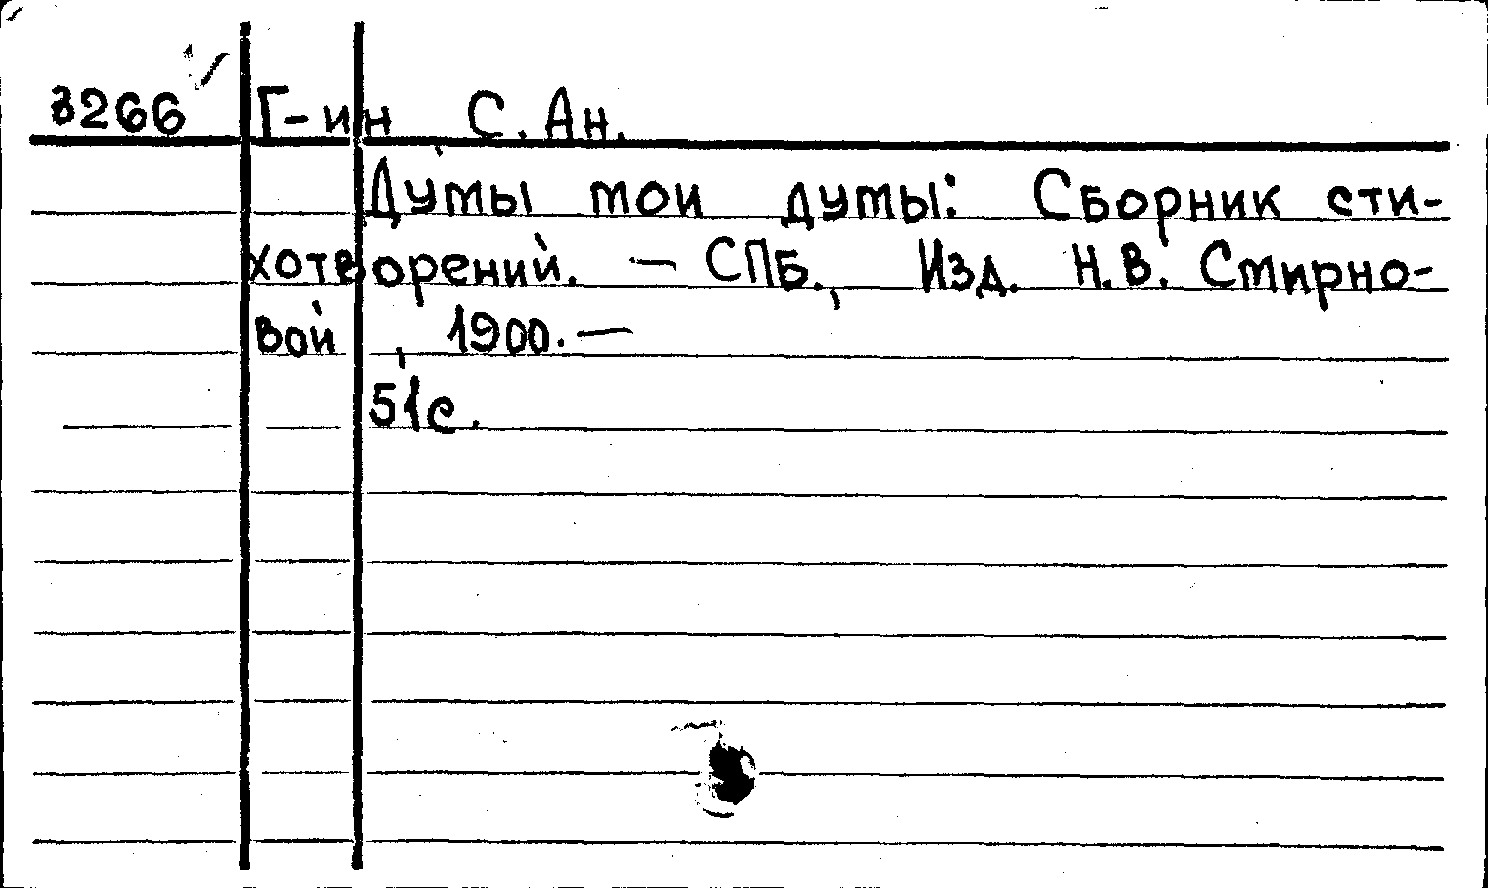 3266 Г-ин С. Ан.
Думы мои думы: Сборник сти-
хотворений. — СПБ., Изд. Н.В. Смирно-
вой, 1900. —
51с.